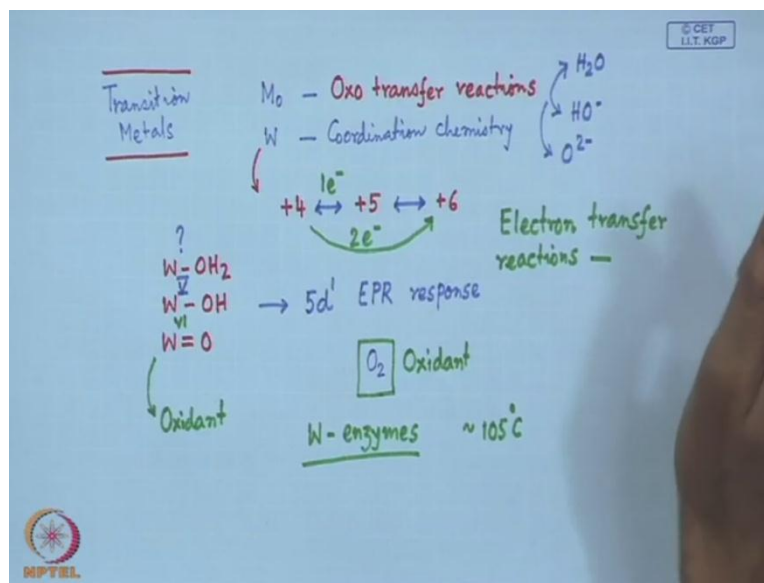 © CET
I.I.T. KGP
Transition
Metals
Mo – Oxo transfer reactions
W – Coordination chemistry
H₂O
HO⁻
O²⁻
1e⁻
+4 ↔ +5 ↔ +6
2e⁻
Electron transfer
reactions –
?
W – OH₂
V
W – OH → 5d¹ EPR response
VI
W = O
O₂ Oxidant
Oxidant
W- enzymes ~ 105°C
NPTEL